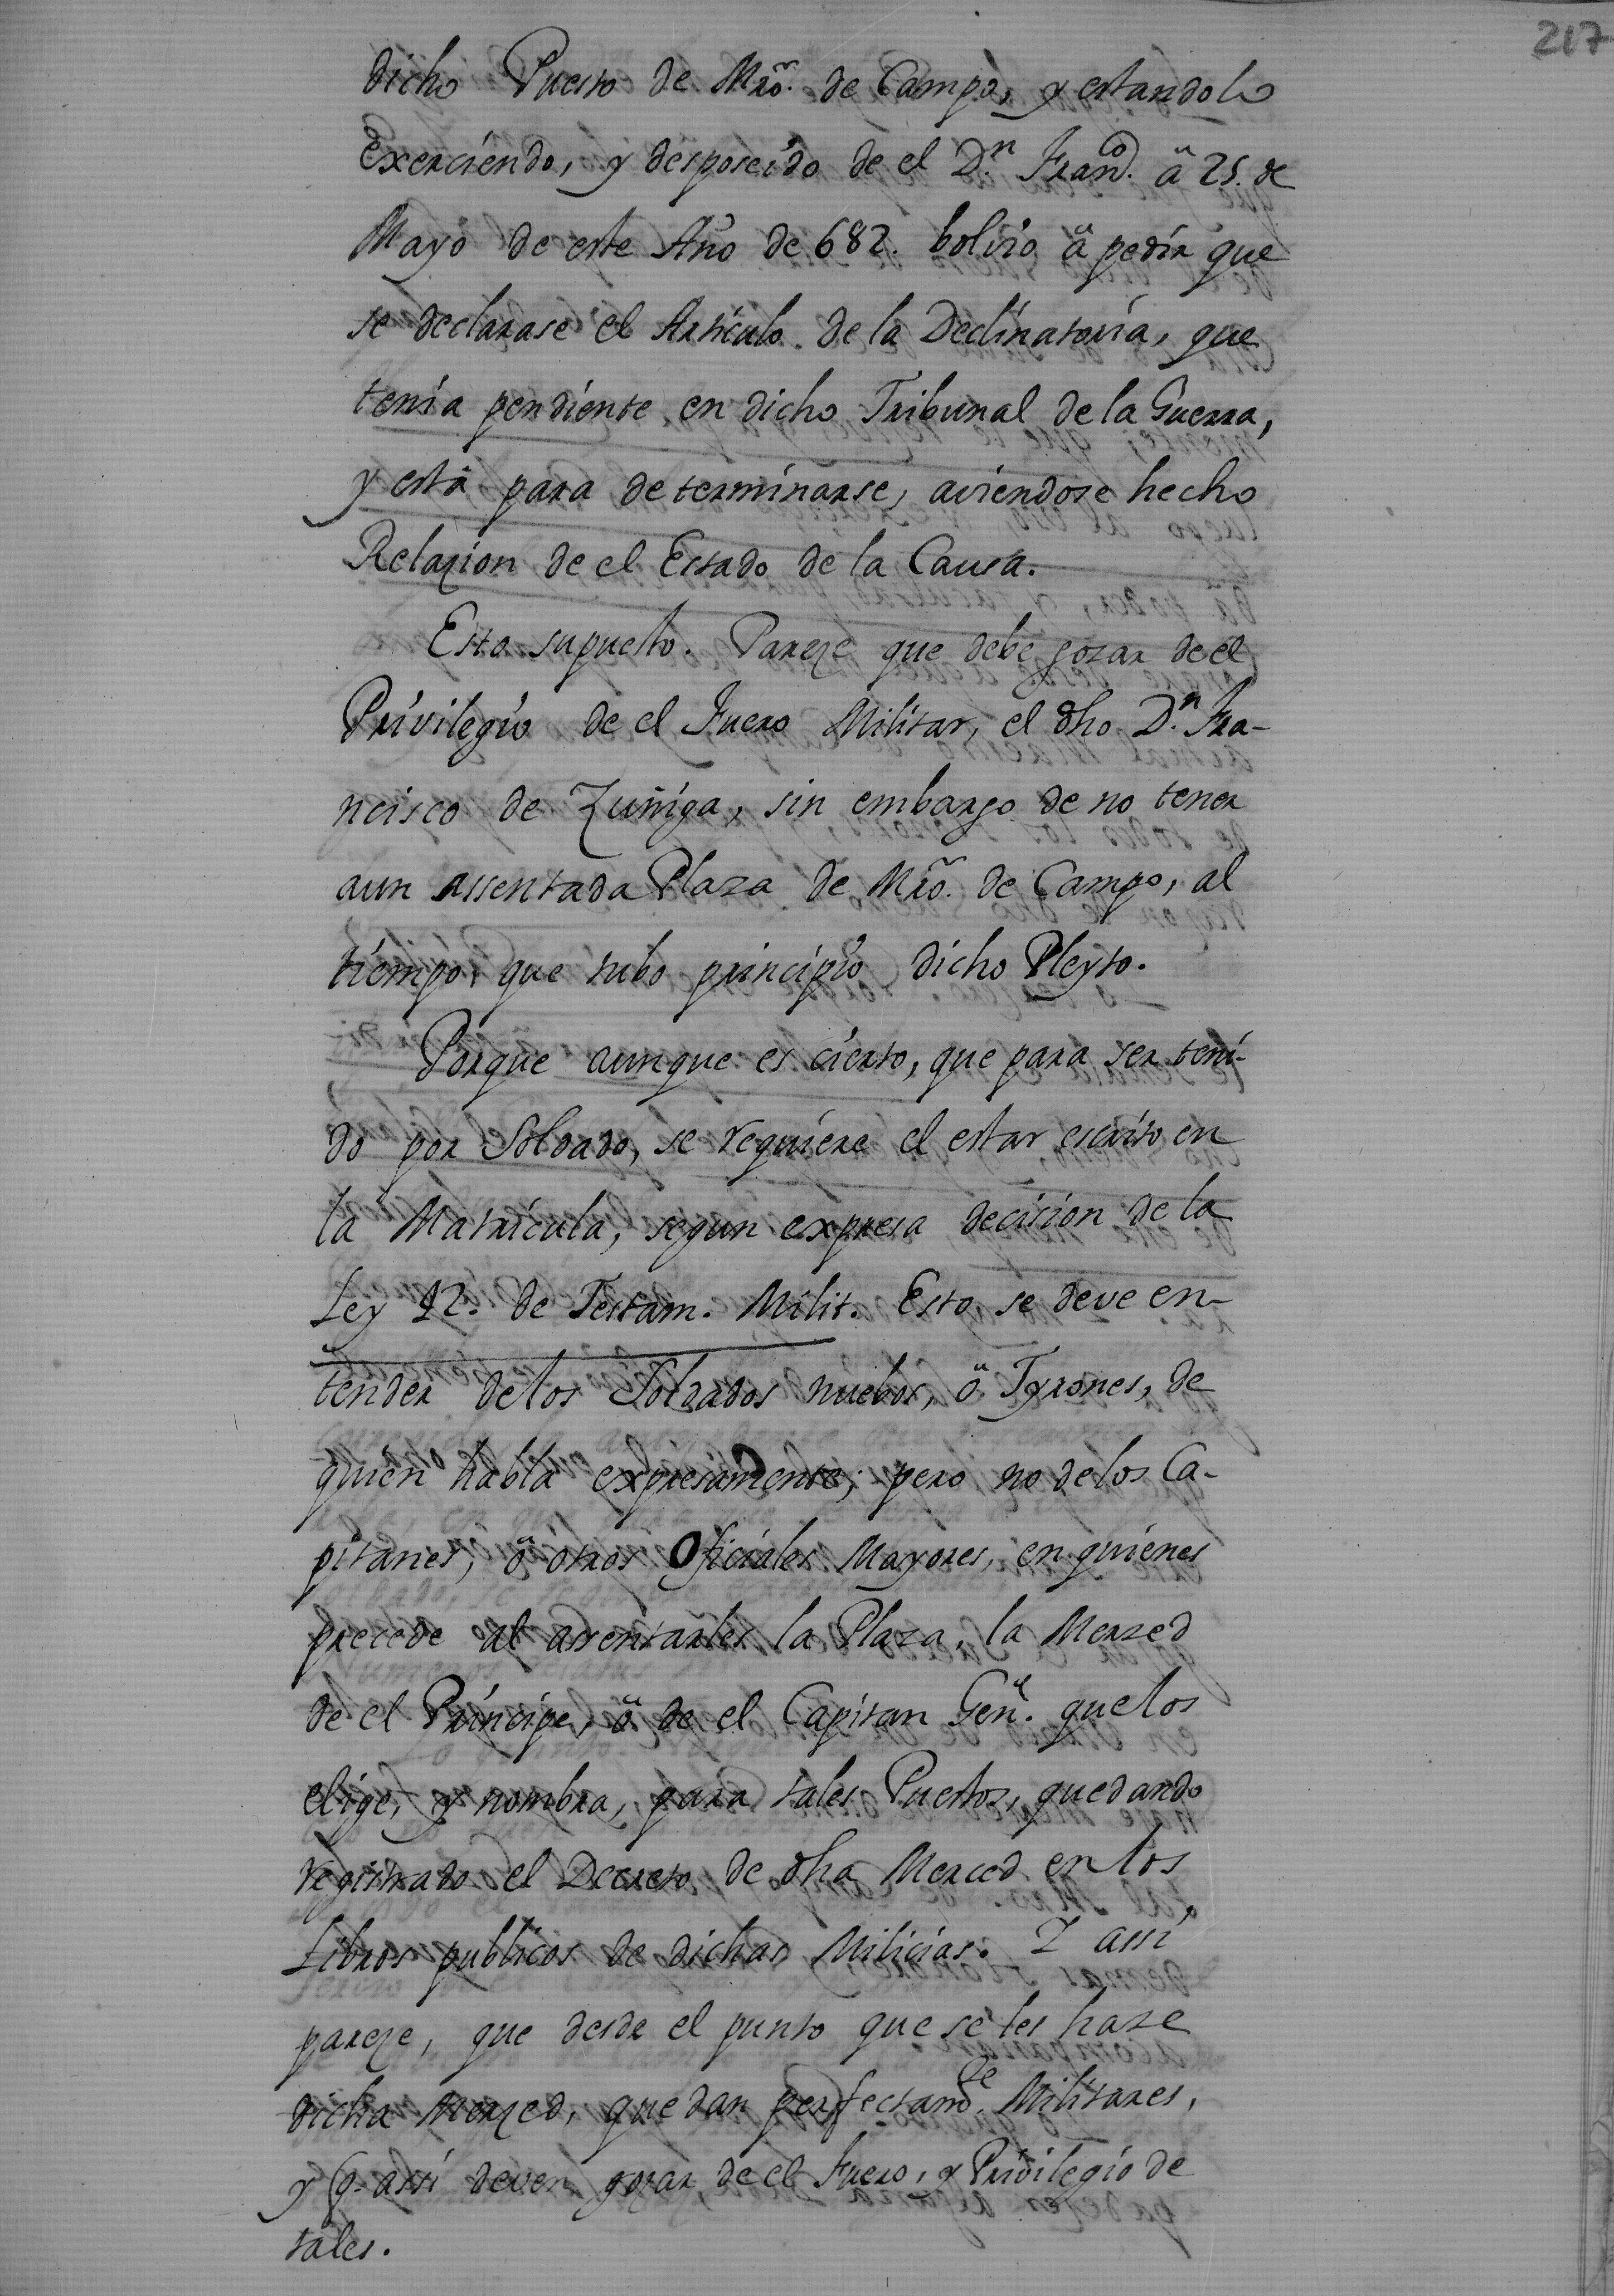 217
dicho Puesto de Mrõ. de Campo, y estandolo
Exerciendo, y desposeido de el D.n Fran.co â 25. de
Mayo de este Año de 682. bolvio â pedir que
se declarase el Articulo de la Declinatoria, que
tenia pendiente en dicho Tribunal de la Guerra,
y està para determinarse, aviendose hecho
Relazion de el Estado de la Causa.
Esto supuesto. Pareze que debe gozar de el
Privilegio de el Fuero Militar, el dho D.n Fra-
ncisco de Zuñiga, sin embargo de no tener
aun assentada Plaza de Mrõ. de Campo, al
tiempo, que tubo principio dicho Pleyto.
Porque aunque es cierto, que para ser teni-
do por Soldado, se requiere el estar escrito en
la Matricula, segun expresa decision de la
Ley 42. de Testam. Milit. Esto se deve en-
tender de los Soldados nuebos, ô Tyrones, de
quien habla expresamente; pero no de los Ca-
pitanes, ô otros Oficiales Mayores, en quienes
precede al assentarles la Plaza, la Merzed
de el Principe, ô de el Capitan Gen.l que los
elige, y nombra, para tales Puestos, quedando
registrado el Decreto de dha Merced en los
Libros publicos de dichas Milicias. Y assi
pareze, que desde el punto que se les haze
dicha Merzed, quedan perfectam.te Militares,
y q. assi deven gozar de el Fuero, y Privilegio de
tales.